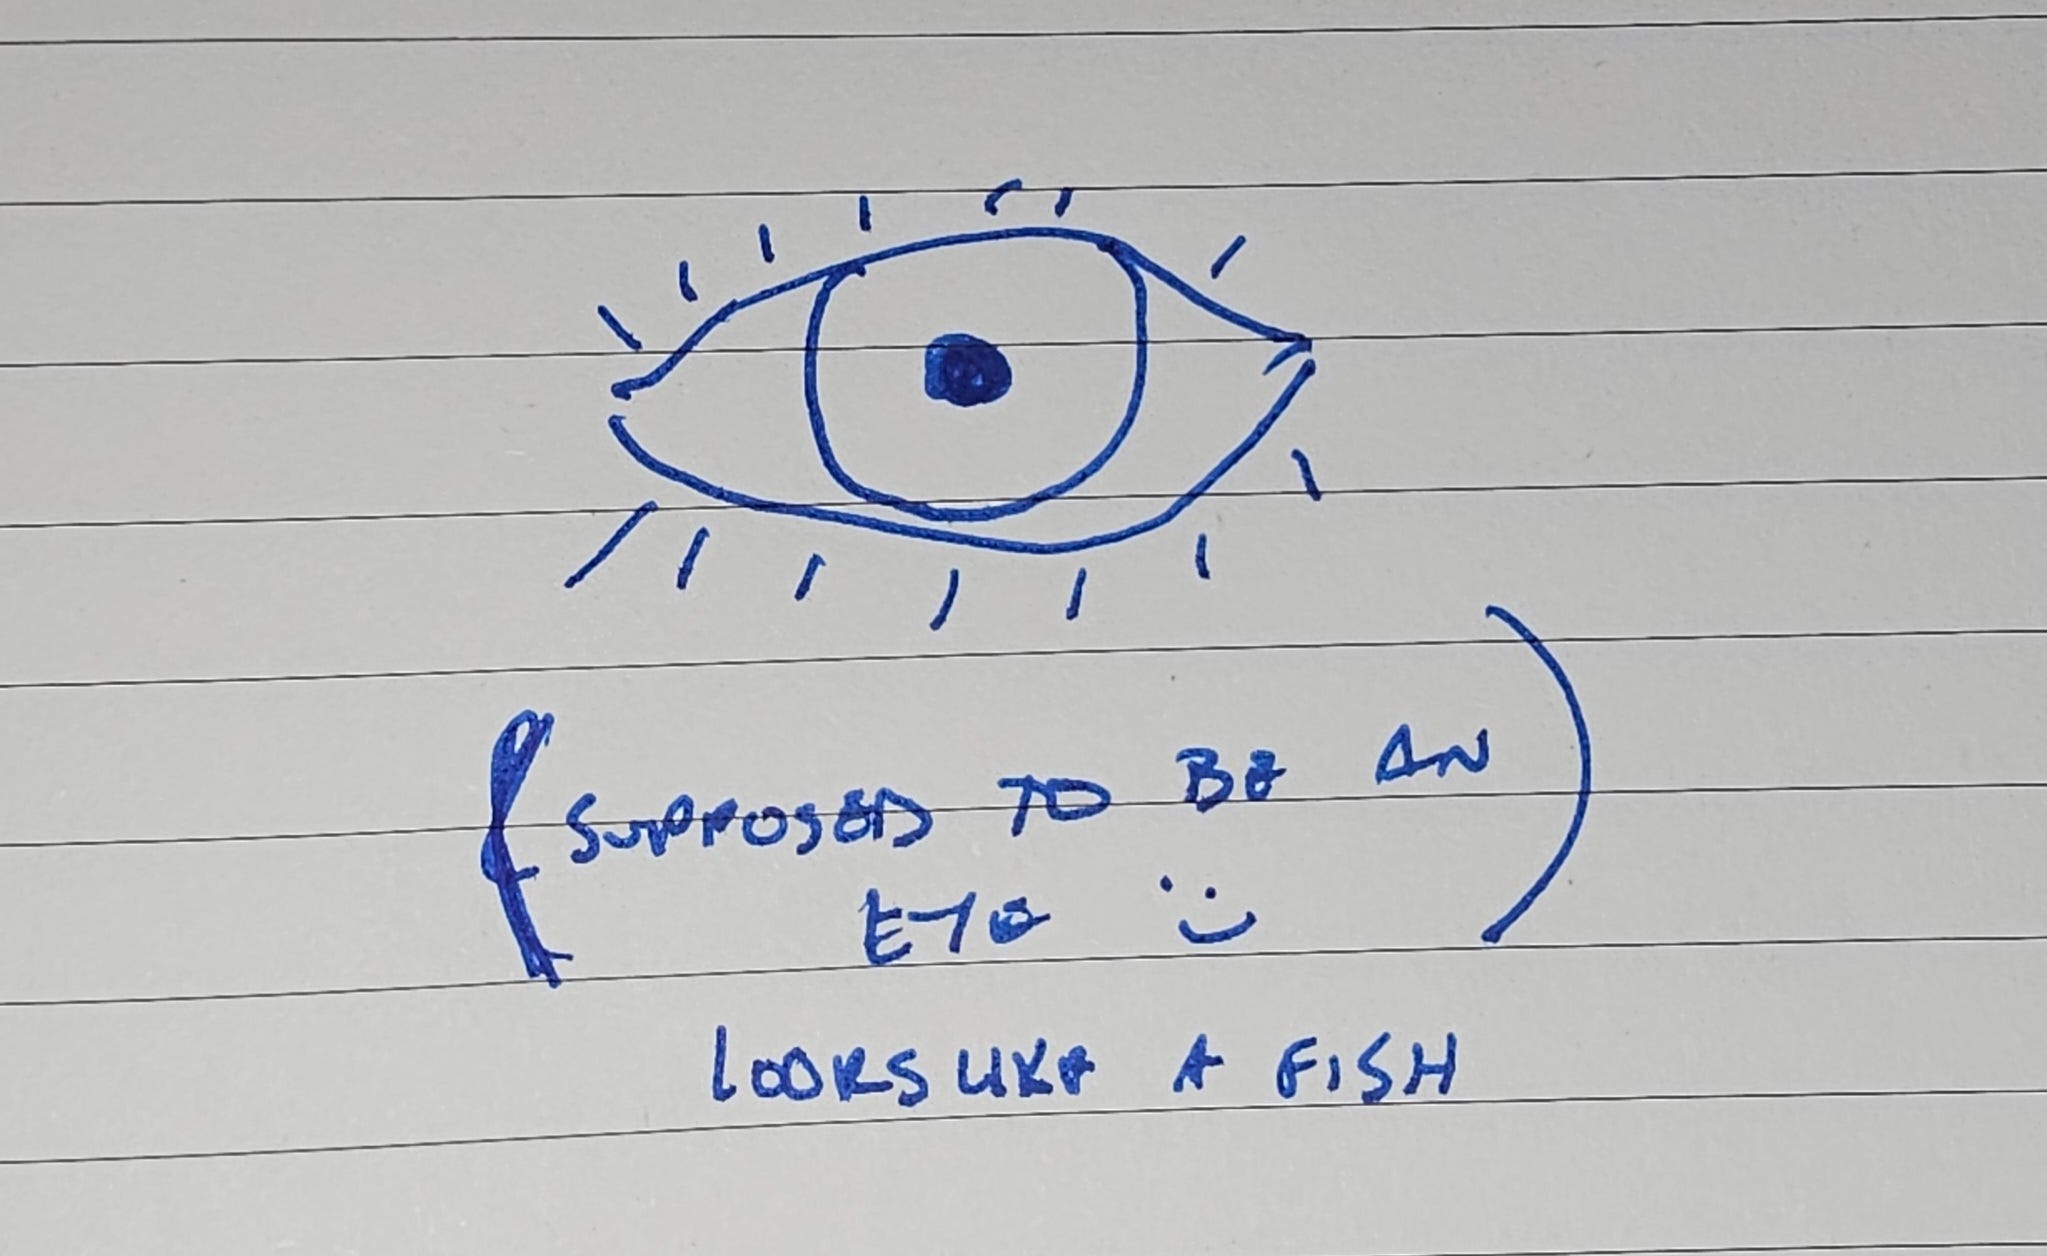 (SUPPOSED TO BE AN
EYE :))
LOOKS LIKE A FISH